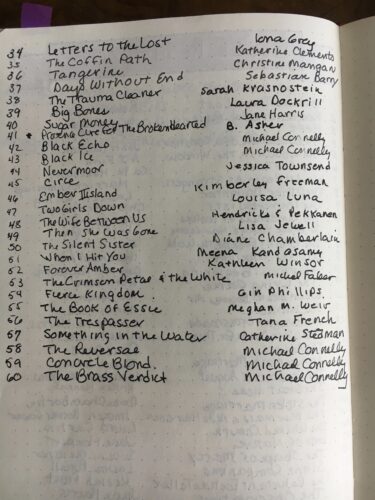 34 Letters to the Lost Iona Grey
35 The Coffin Path Katherine Clements
36 Tangerine Christine Mangan
37 Days Without End Sebastian Barry
38 The Trauma Cleaner Sarah Krasnostein
39 Big Bones Laura Dockrill
40 Sugar Money Jane Harris
41 * Cure The BrokenHearted B. Asher
42 Black Echo Michael Connelly
43 Black Ice Michael Connelly
44 Nevermoor Jessica Townsend
45 Circe
46 Ember Island Kimberley Freeman
47 Two Girls Down Louisa Luna
48 The Wife Between Us Hendricks & Pekkanen
49 Then She Was Gone Lisa Jewell
50 The Silent Sister Diane Chamberlain
51 When I Hit You Meena Kandasamy
52 Forever Amber Kathleen Winsor
53 The Crimson Petal & the White Michel Faber
54 Fierce Kingdom. Gin Phillips
55 The Book of Essie Meghan M. Weir
56 The Trespasser Tana French
57 Something in the Water Catherine Stedman
58 The Reversal Michael Connelly
59 Concrete Blond. Michael Connelly
60 The Brass Verdict Michael Connelly